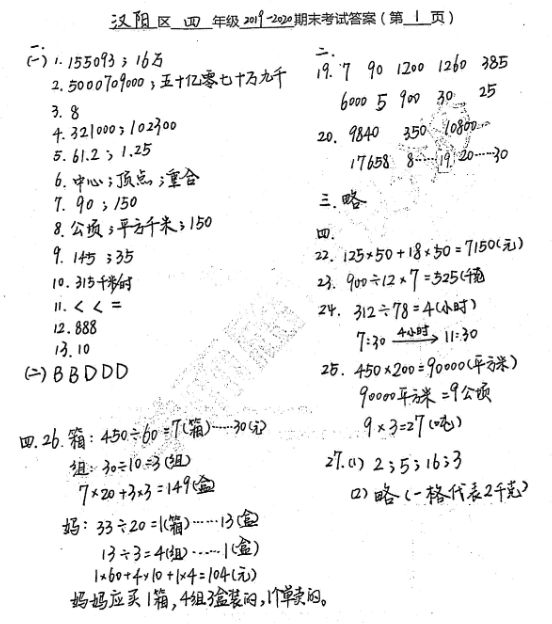 汉阳 区 四 年级 2019-2020 期末考试答案（第 1 页）
一.
(一) 1. 155093；16万
2. 5000709000；五十亿零七十万九千
3. 8
4. 321000；102300
5. 61.2；1.25
6. 中心；顶点；重合
7. 90；150
8. 公顷；平方千米；150
9. 145；35
10. 315千米/时
11. < < =
12. 888
13. 10
(二) B B D D D
四. 26. 箱：450÷60=7(箱)……30(元)
组：30÷10=3(组)
7×20+3×3=149(盒)
妈：33÷20=1(箱)……13(盒)
13÷3=4(组)……1(盒)
1×60+4×10+1×4=104(元)
妈妈应买1箱，4组3盒装的，1个单卖的。
二.
19. 7 90 1200 1260 385
6000 5 900 30 25
20. 9840 350 10800
17658 8…… 19 20……30
三. 略
四.
22. 125×50+18×50=7150(元)
23. 900÷12×7=525(千克)
24. 312÷78=4(小时)
7:30 4小时→ 11:30
25. 450×200=90000(平方米)
90000平方米=9公顷
9×3=27(吨)
27. (1) 2；5；16；3
(2) 略 (一格代表2千克)